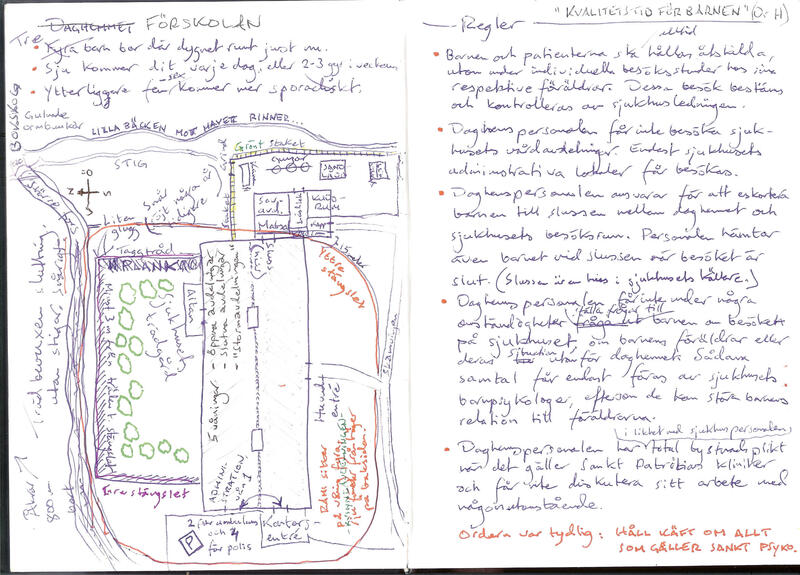 DAGHEMMET FÖRSKOLAN
Tre
• Fyra barn bor där dygnet runt just nu.
• Sju kommer dit varje dag, eller 2-3 ggr i veckan
• Ytterligare fem-sex kommer mer sporadiskt.
BOKSKOG
Gulnade
ormbunkar
LILLA BÄCKEN MOT HAVET RINNER...
STIG
Grönt staket
Gungor
SAND
LÅDA
Större hus
N
S
Ö
V
Liten
glugg
Sov
avd.
Matsal
KUD-
RUM
Taggtråd
MURPLANK
Allén
Sjukhusets
trädgård
Minst 3 m från träden t. stängslet
Yttre
stängslet
2,5 meter
5 våningar
- öppna avdelningar
- slutna avdelningar
- "stormavdelningar"
Huvud-
entré
ADMINI-
STRATION
Träd bevuxen sluttning
utan stigar, snårigt
Åkar
800 m
bort
Inre stängslet
RÄMS sitter
på våning fyra
på baksidan.
2 för ambulans
och 4
för polis
P
Kontors-
entré
"KVALITETSTID FÖR BARNEN" (Dr H)
— Regler
alltid
• Barnen och patienterna ska hållas åtskilda,
utom under individuella besöksstunder hos sina
respektive föräldrar. Dessa besök bestäms
och kontrolleras av sjukhusledningen.
• Daghemspersonalen får inte besöka sjuk-
husets vårdavdelningar. Endast sjukhusets
administrativa lokaler får besökas.
• Daghemspersonalen ansvarar för att eskortera
barnen till slussen mellan daghemmet och
sjukhusets besöksrum. Personalen hämtar
även barnet vid slussen när besöket är
slut. (Slussen är en hiss i sjukhusets källare.)
• Daghemspersonalen får inte under några
ställa frågor till
omständigheter fråga ut barnen om besöket
på sjukhuset, om barnens föräldrar eller
deras situation utanför daghemmet. Sådana
samtal får endast föras av sjukhusets
barnpsykologer, eftersom de kan störa barnens
relation till föräldrarna.
i likhet med sjukhuspersonalen
• Daghemspersonalen har total tystnadsplikt
när det gäller Sankt Patricias kliniker
och får inte diskutera sitt arbete med
någon utomstående.
Ordern var tydlig: HÅLL KÄFT OM ALLT
SOM GÄLLER SANKT PSYKO.